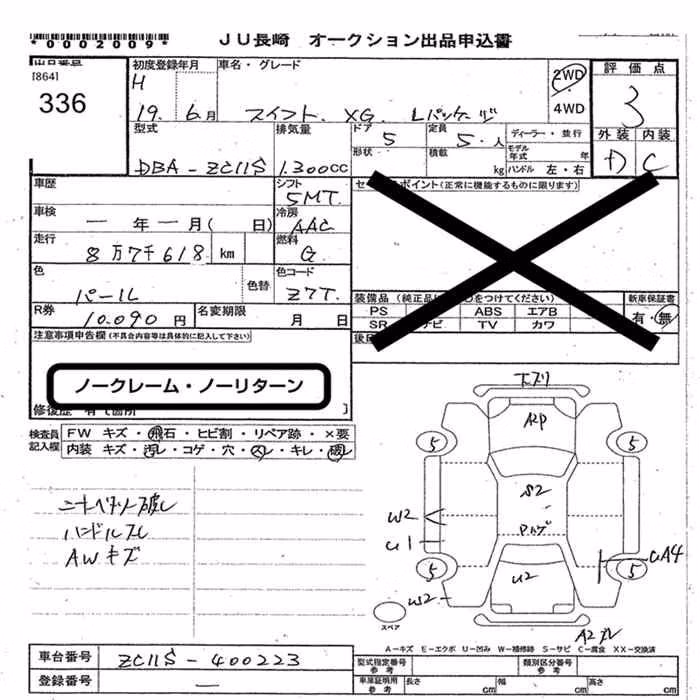 *0002009* JU長崎 オークション出品申込書
出品番号 初度登録年月 車名・グレード 2WD 評価点
[864] H
336 19. 6月 スイフト XG Lパッケージ 4WD 3
型式 排気量 ドア 5 定員 5.人 ディーラー・並行 外装 内装
形状 積載 kg モデル年式 年 ハンドル 左・右 D C
DBA-ZC11S 1.300cc
車歴 シフト 5MT
車検 ー年ー月( 日) 冷房 AAC
走行 8万7千618 km 燃料 G
色 パール 色替 色コード Z7T
R券 10.090円 名変期限 月 日
セールスポイント(正常に機能するものに限ります)
装備品 新車保証書
PS ABS エアB 有・無
SR ナビ TV カワ
注意事項申告欄(不具合内容等は具体的に記入して下さい)
ノークレーム・ノーリターン
修復歴 有(箇所 ]
検査員記入欄 FW キズ・飛石・ヒビ割・リペア跡・×要
内装 キズ・汚レ・コゲ・穴・スレ・キレ・破レ
ハンドルスレ
AWキズ
下ズリ
5 5
S2
W2
U1 UA4
5 5
U2
W2
スペア
A2
A-キズ E-エクボ U-凹み W-補修跡 S-サビ C-腐食 XX-交換済
車台番号 ZC11S-400223
登録番号 ー
型式指定番号 参考 類別区分番号 参考
車庫証明用 参考 長さ cm 幅 cm 高さ cm